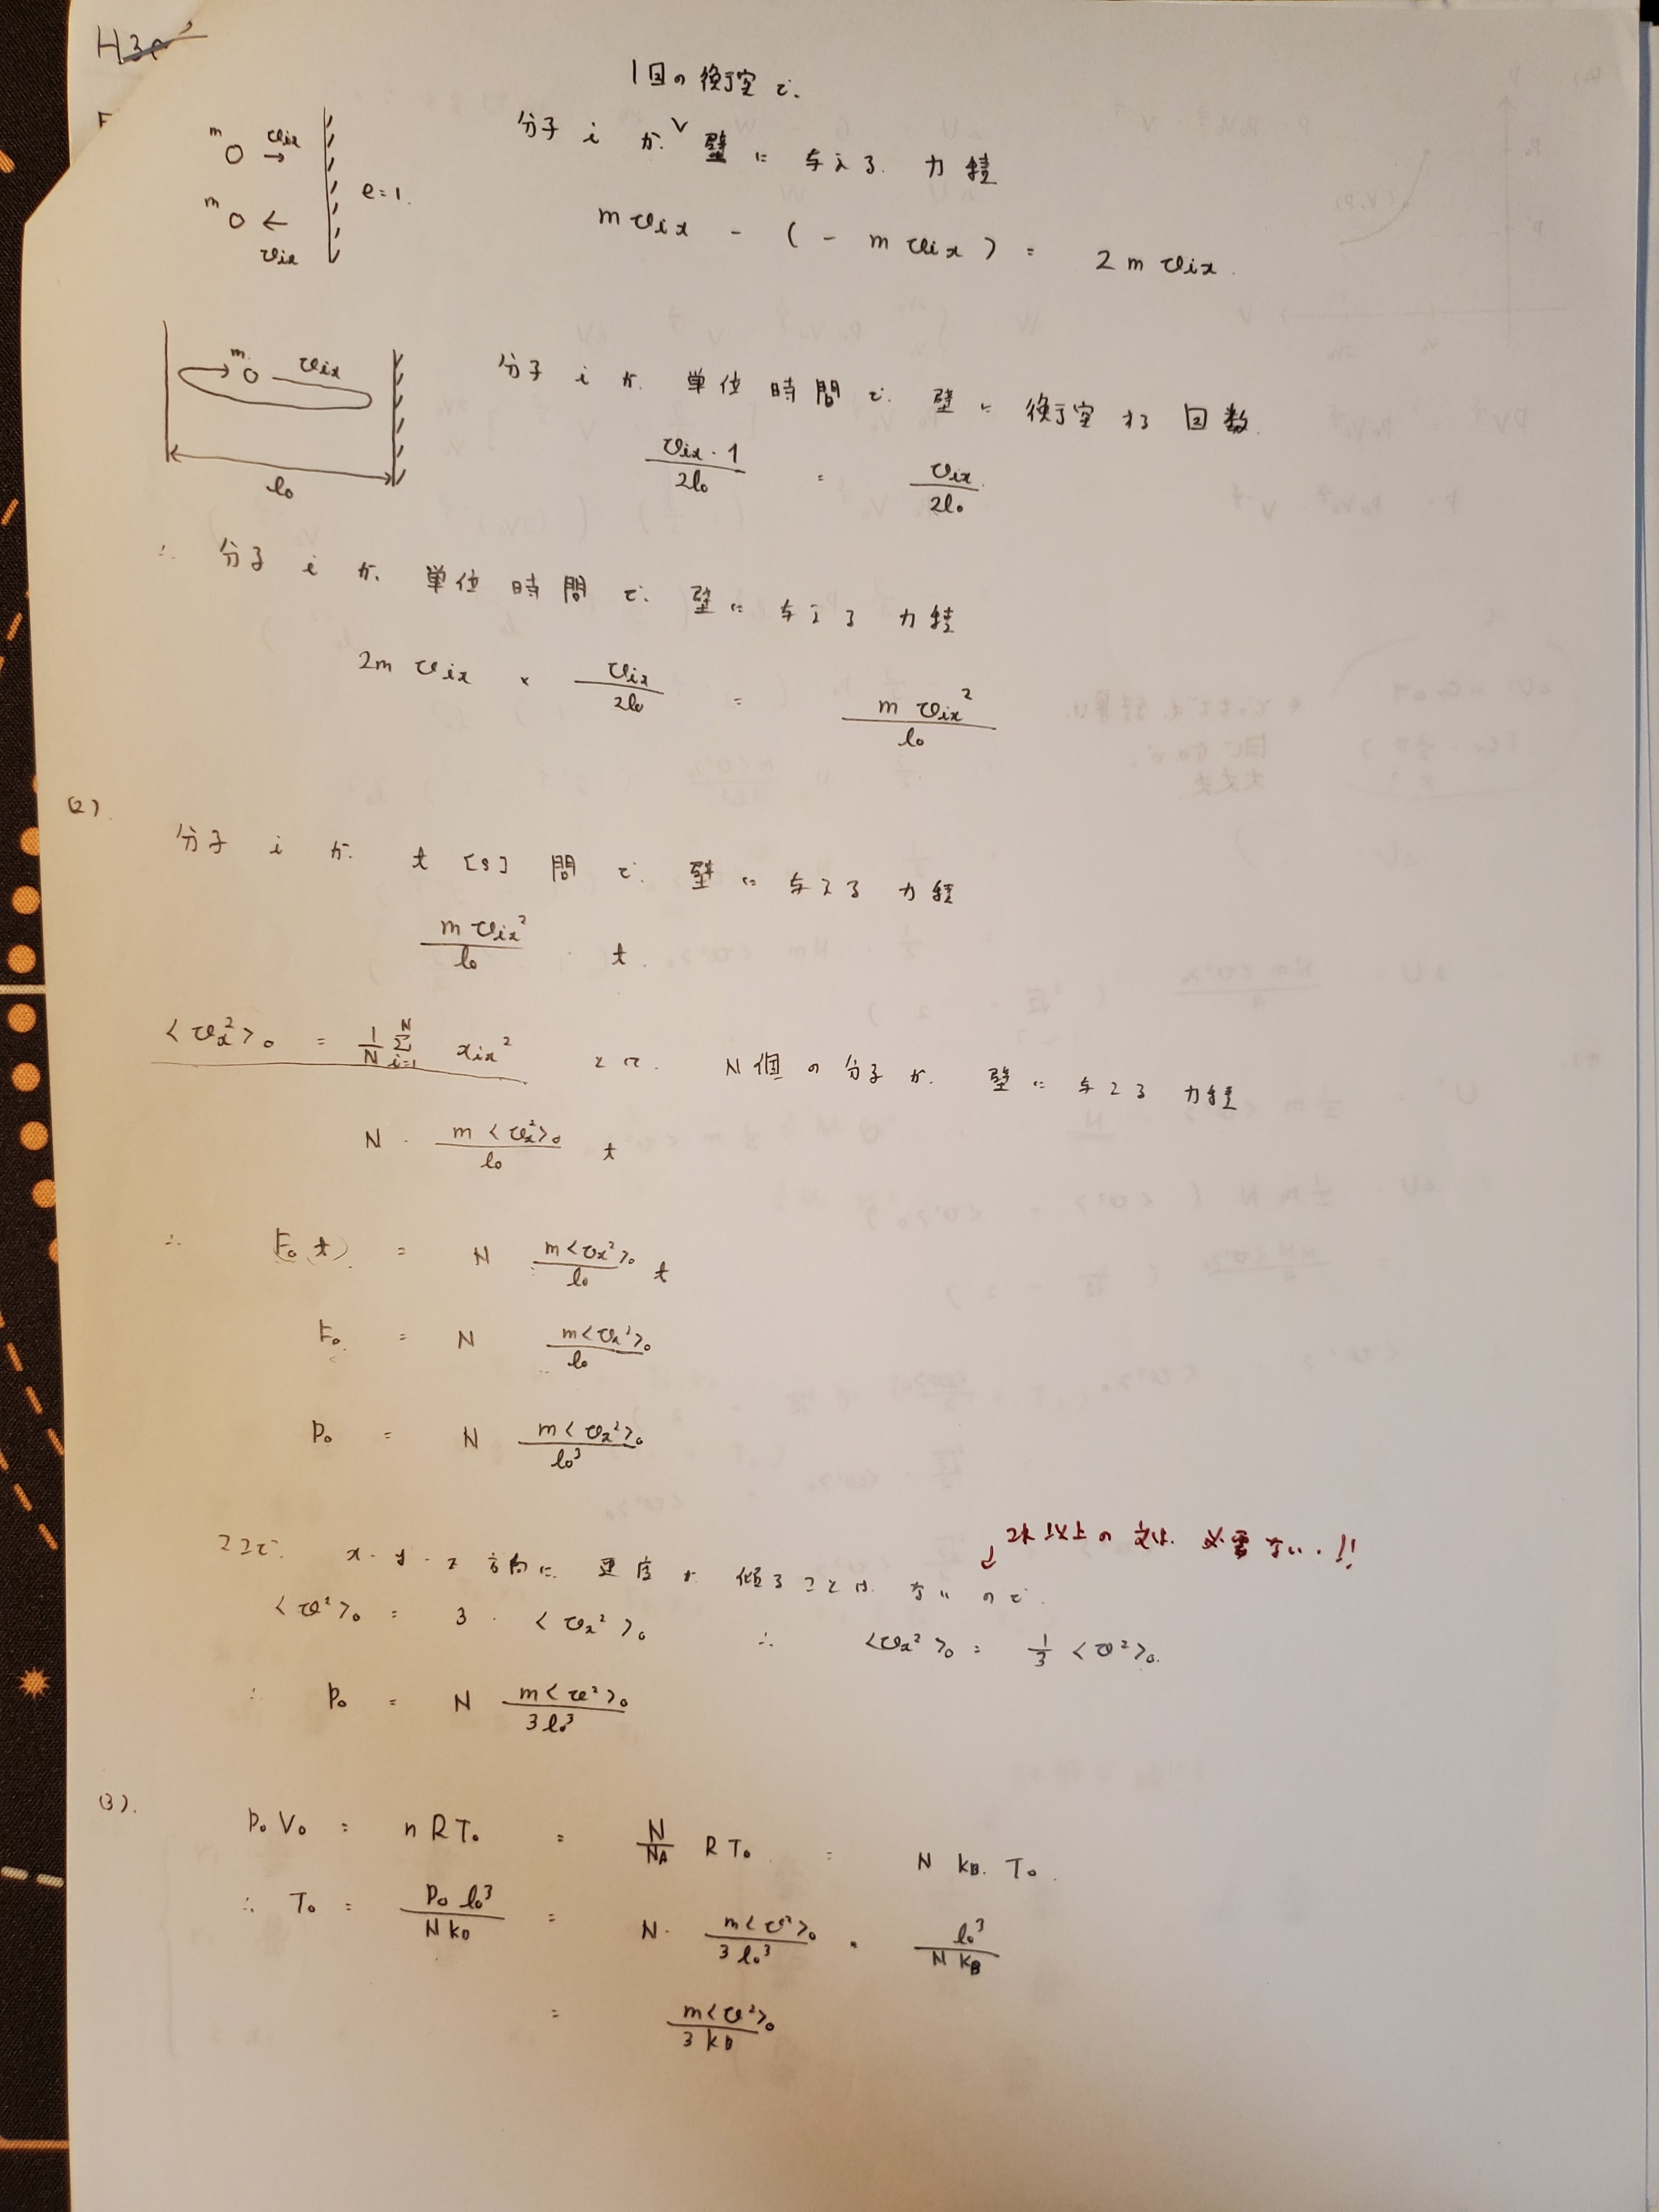 1回の衝突で
分子 i が 壁に与える 力積
m vix → e=1.
m ← vix
m vix - (- m vix) = 2 m vix.
m vix
l₀
分子 i が 単位時間で 壁に衝突する回数.
vix・1 / 2l₀ = vix / 2l₀.
∴ 分子 i が 単位時間で 壁に与える 力積
2m vix × vix / 2l₀ = m vix² / l₀
(2).
分子 i が t [s] 間で 壁に与える 力積
m vix² / l₀ ・ t.
<vx²>₀ = 1/N Σ_{i=1}^{N} xix² とて. N個の分子が 壁に与える 力積
N ・ m<vx²>₀ / l₀ t
∴ F₀(t) = N m<vx²>₀ / l₀ t
F₀ = N m<vx²>₀ / l₀
P₀ = N m<vx²>₀ / l₀³
↓ これ以上の文は 必要ない.!!
ここで. x・y・z 方向に 速度が 傾ることは ないので.
<v²>₀ = 3・<vx²>₀ ∴ <vx²>₀ = 1/3 <v²>₀.
∴ P₀ = N m<v²>₀ / 3l₀³
(3).
P₀V₀ = nRT₀ = N/NA RT₀ = N kB. T₀.
∴ T₀ = P₀ l₀³ / N kB = N・ m<v²>₀ / 3l₀³ ・ l₀³ / N kB
= m<v²>₀ / 3 kB